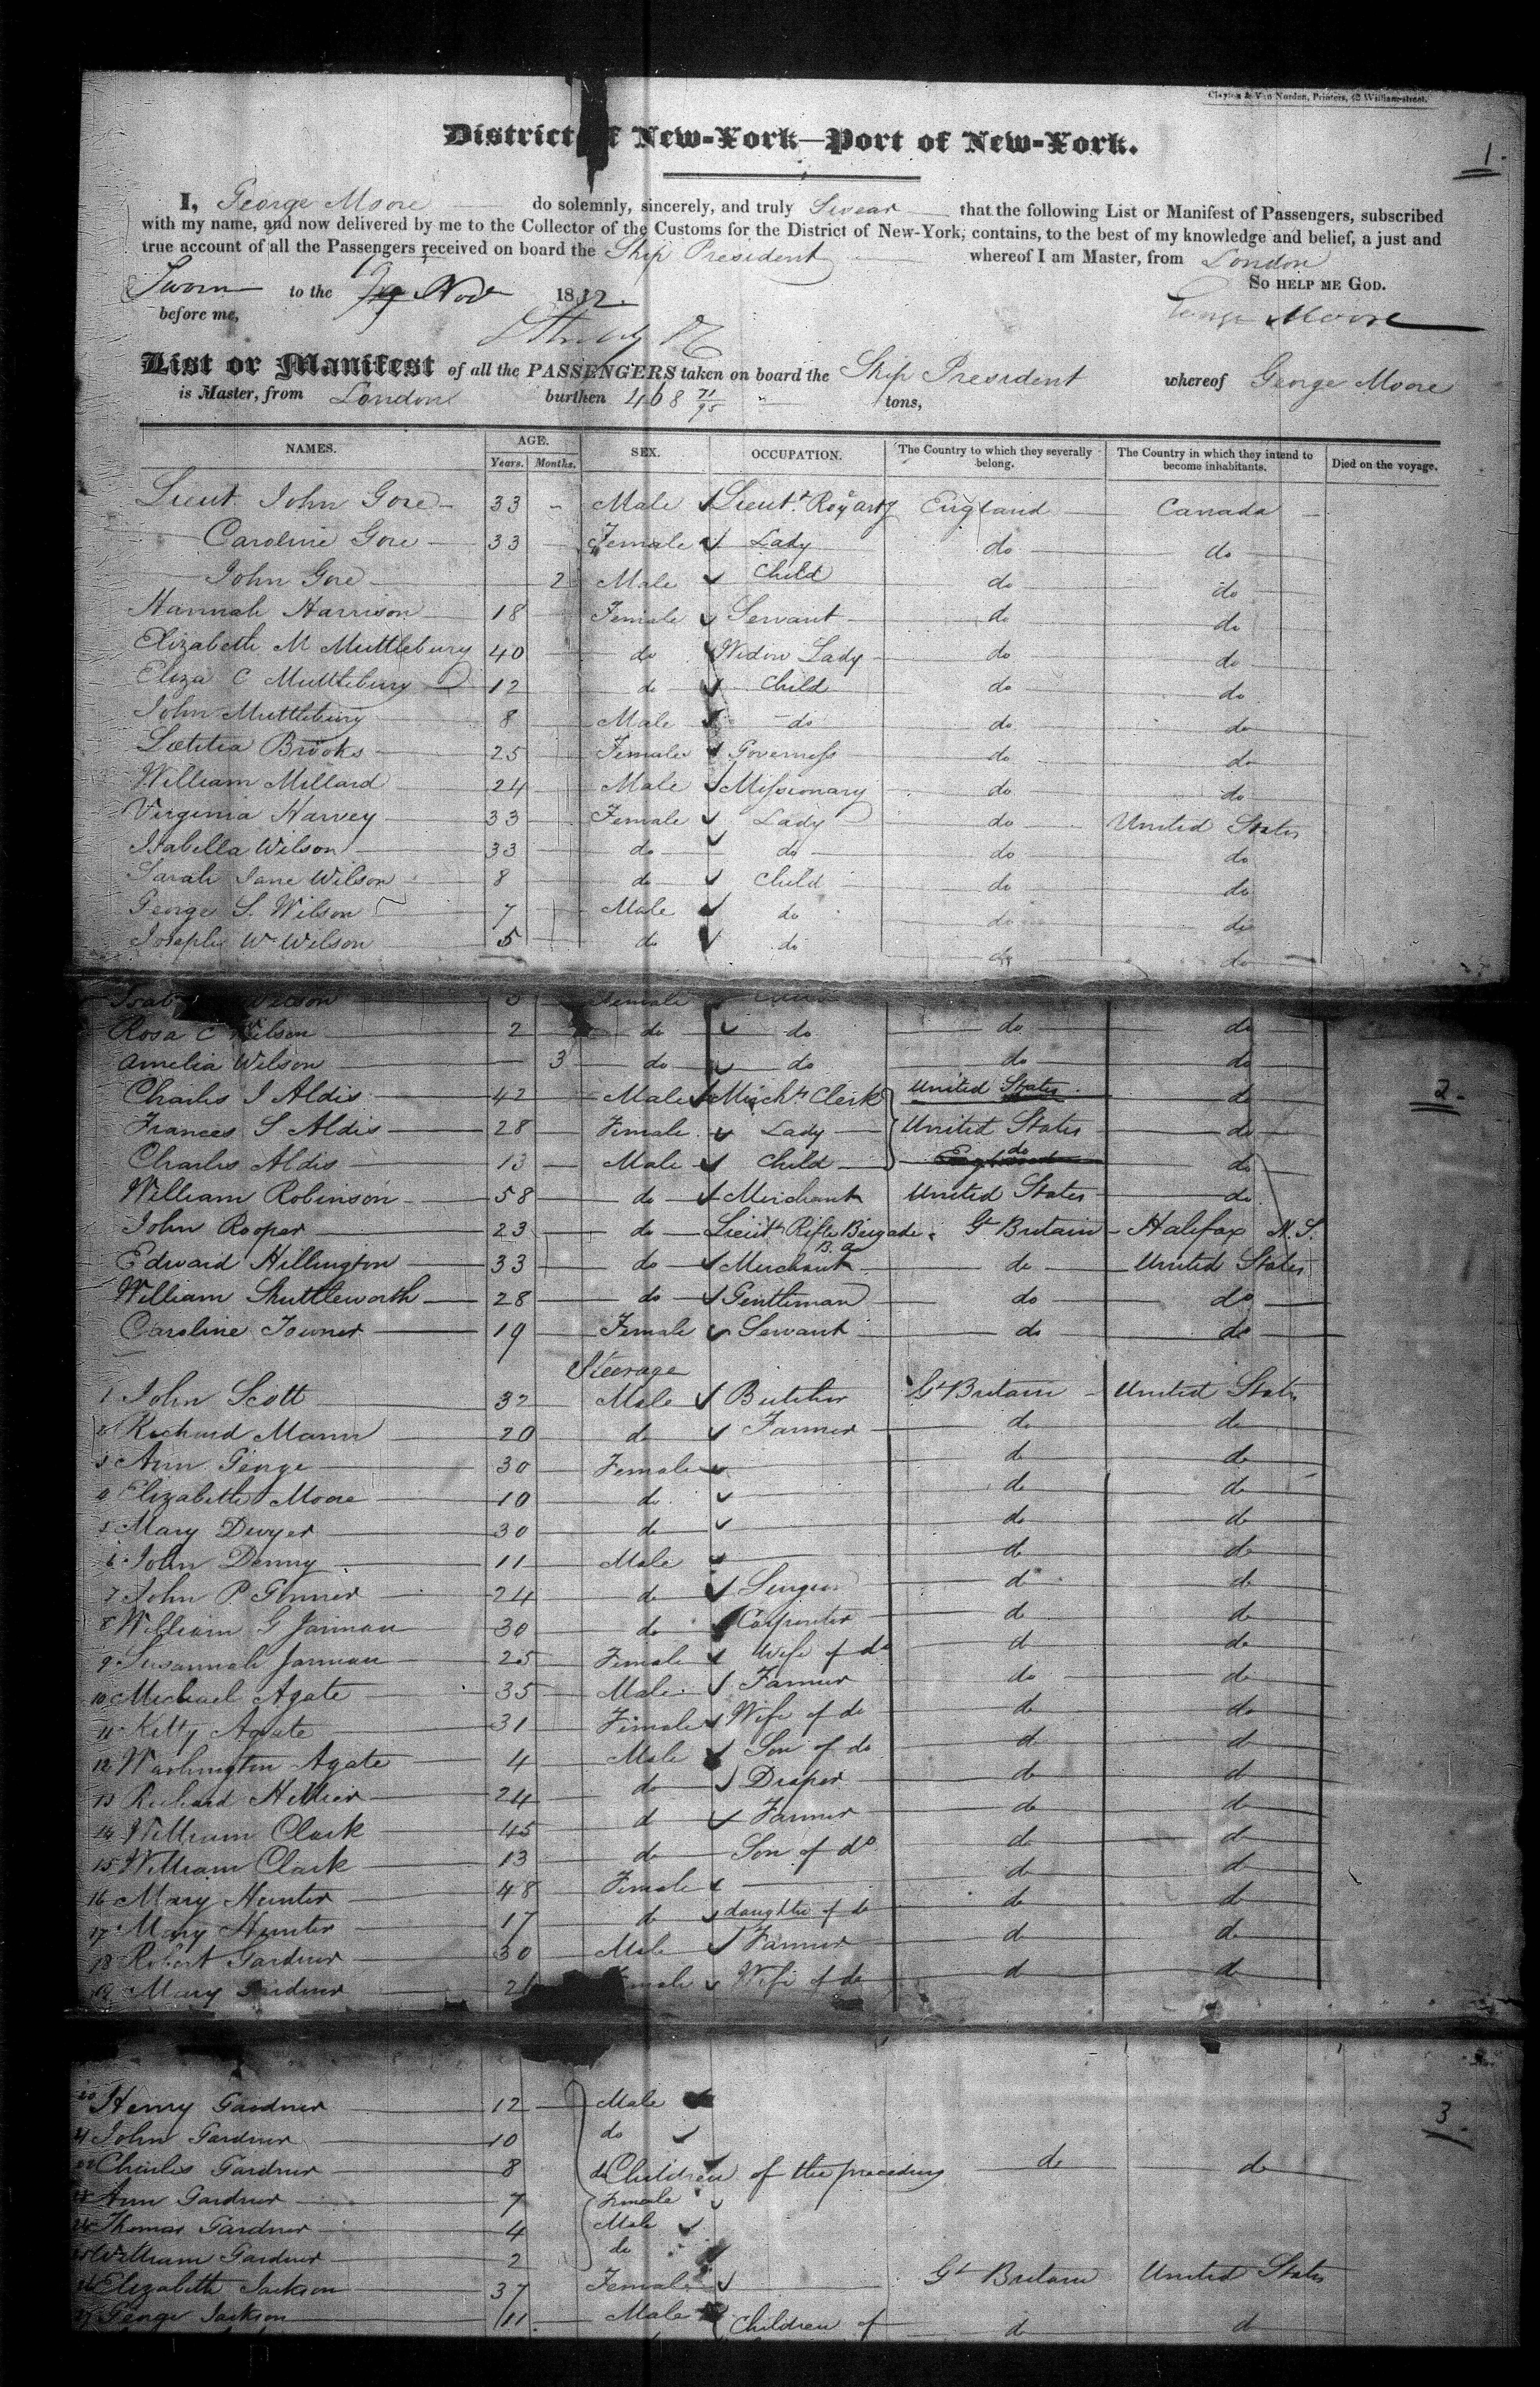 Clayton & Van Norden, Printers, 42 William-street.
District of New-York—Port of New-York.
1.
I, George Moore do solemnly, sincerely, and truly Swear that the following List or Manifest of Passengers, subscribed
with my name, and now delivered by me to the Collector of the Customs for the District of New-York, contains, to the best of my knowledge and belief, a just and
true account of all the Passengers received on board the Ship President whereof I am Master, from London
So help me God.
Sworn to the Nov 1832.
before me,
George Moore
List or Manifest of all the PASSENGERS taken on board the Ship President whereof George Moore
is Master, from London burthen 468 71/95 tons,
NAMES. AGE. SEX. OCCUPATION. The Country to which they severally belong. The Country in which they intend to become inhabitants. Died on the voyage.
Years. Months.
Lieut John Gore 33 - Male Lieut. Roy Arty England Canada
Caroline Gore 33 Female Lady do do
John Gore 2 Male Child do do
Hannah Harrison 18 Female Servant do do
Elizabeth M Muttlebury 40 do Widow Lady do do
Eliza C Muttlebury 12 do Child do do
John Muttlebury 8 Male do do do
Lœtitia Brooks 25 Female Governess do do
William Millard 24 Male Missionary do do
Virginia Harvey 33 Female Lady do United States
Isabella Wilson 33 do do do do
Sarah Jane Wilson 8 do Child do do
George S. Wilson 7 Male do do do
Joseph W Wilson 5 do do do do
Wilson 3 Female
Rosa C Wilson 2 do do do do
Amelia Wilson 3 do do do do
Charles J Aldis 42 Male Mercht Clerk United States do
2.
Frances S Aldis 28 Female Lady United States do
Charles Aldis 13 Male Child do do
William Robinson 58 do Merchant United States do
John Rooper 23 do Lieut Rifle Brigade Gt Britain Halifax N.S.
Edward Hillington 33 do Merchant do United States
William Shuttleworth 28 do Gentleman do do
Caroline Towner 19 Female Servant do do
Steerage
1 John Scott 32 Male Butcher Gt Britain United States
2 Richard Mann 20 do Farmer do do
3 Ann George 30 Female do do
4 Elizabeth Moore 10 do do do
5 Mary Dwyer 30 do do do
6 John Denny 11 Male do do
7 John P. 24 do Surgeon do do
8 William G Jarman 30 do Carpenter do do
9 Susannah Jarman 25 Female Wife of do do do
10 Michael Agate 35 Male Farmer do do
11 Kitty Agate 31 Female Wife of do do do
12 Washington Agate 4 Male Son of do do do
13 Richard Hellier 24 do Draper do do
14 William Clark 45 do Farmer do do
15 William Clark 13 do Son of do do do
16 Mary Hunter 48 Female do do
17 Mary Hunter 17 do daughter of do do do
18 Robert Gardner 30 Male Farmer do do
19 Mary Gardner Female Wife of do do do
20 Henry Gardner 12 Male
21 John Gardner 10 do
3.
22 Charles Gardner 8 do Children of the preceding do do
23 Ann Gardner 7 Female
24 Thomas Gardner 4 Male
25 William Gardner 2 do
26 Elizabeth Jackson 37 Female Gt Britain United States
27 George Jackson 11 Male Children of do do